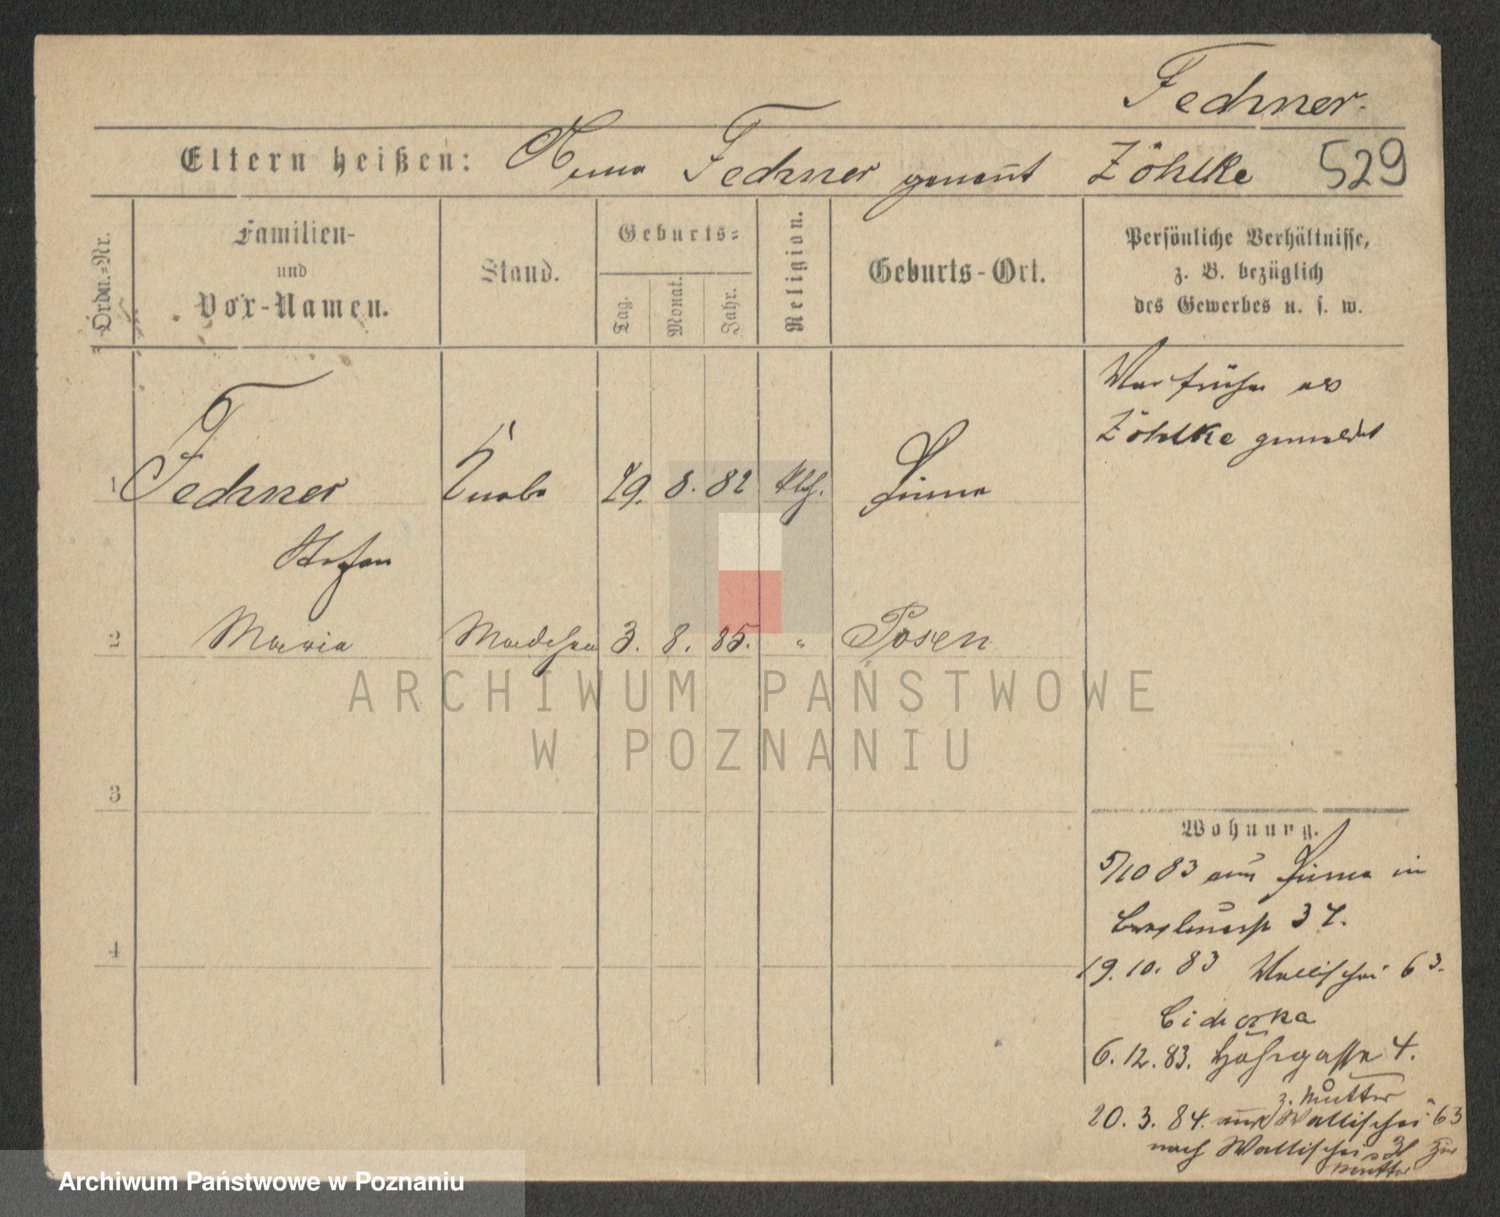 Fechner.
Eltern heißen: Anna Fechner genannt Zöhlke 529
Ordn.-Nr.
Familien-
und
Vor-Namen.
Stand.
Geburts-
Tag.
Monat.
Jahr.
Religion.
Geburts-Ort.
Persönliche Verhältnisse,
z. B. bezüglich
des Gewerbes u. s. w.
War früher als
Zöhlke gemeldet
1 Fechner Knabe 29. 8. 82 kth. Pinne
Stefan
2 Maria Mädchen 3. 8. 85. " Posen
3
4
Wohnung.
5/10 83 aus Pinne in
37.
19. 10. 83 Wallischei 63.
Cichorka
6. 12. 83. 4.
z. Mutter
20. 3. 84. Wallischei 63
nach Wallischei zur
Mutter
ARCHIWUM PAŃSTWOWE
W POZNANIU
Archiwum Państwowe w Poznaniu